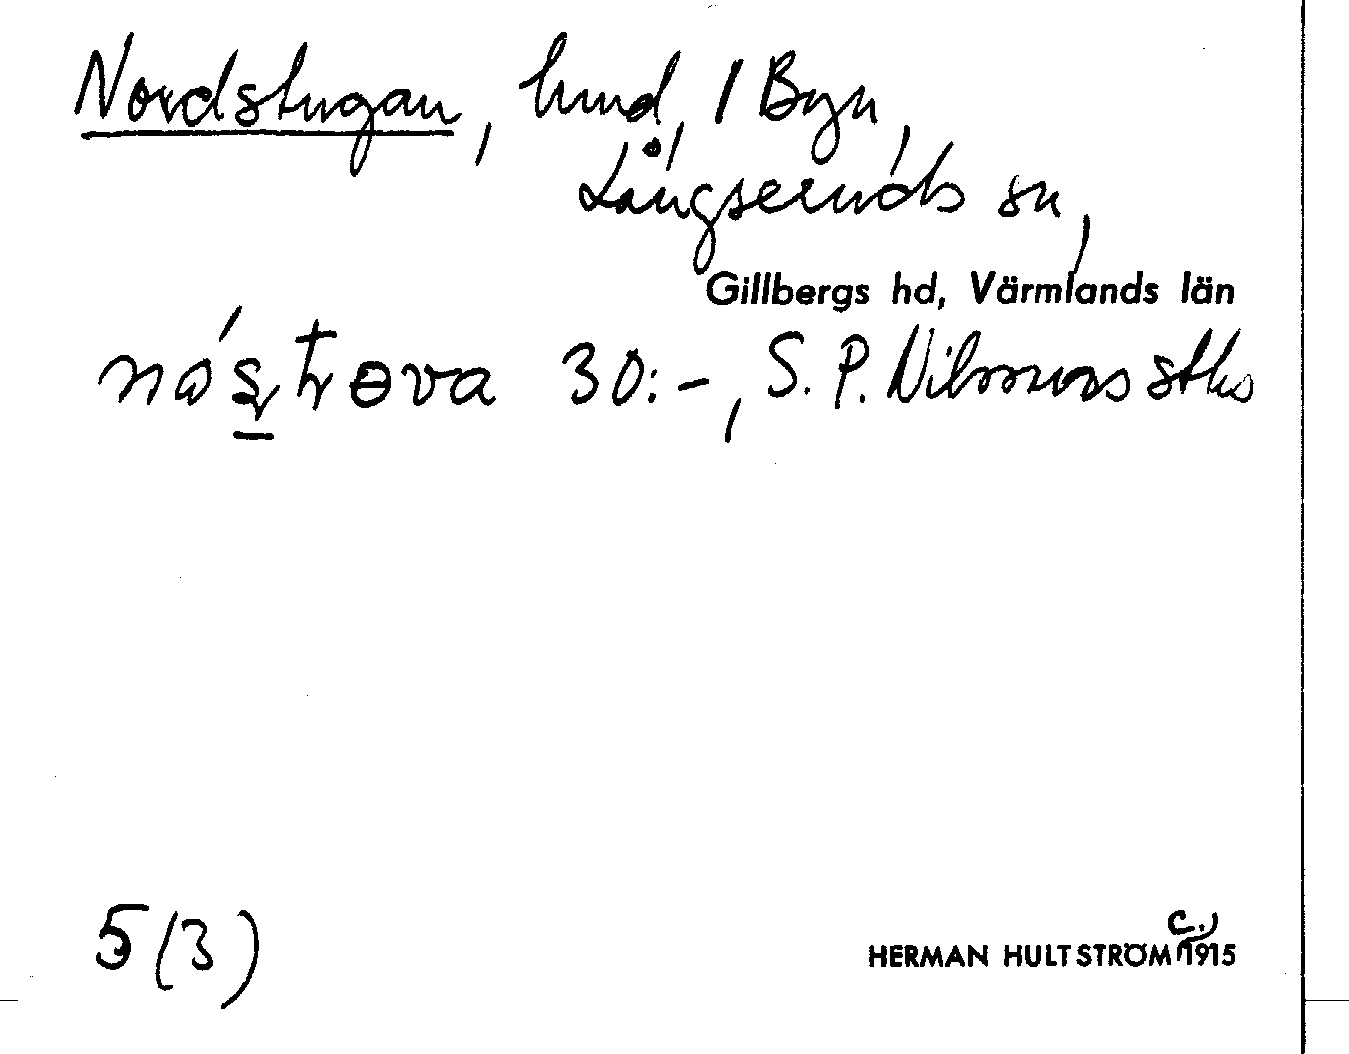 Nordstugan, hmd, 1 Byn,
Långseruds sn,
Gillbergs hd, Värmlands län
nóṣtrɵva 30:-, S. P. Nilssons stks
5(3)
HERMAN HULTSTRÖM c. 1915